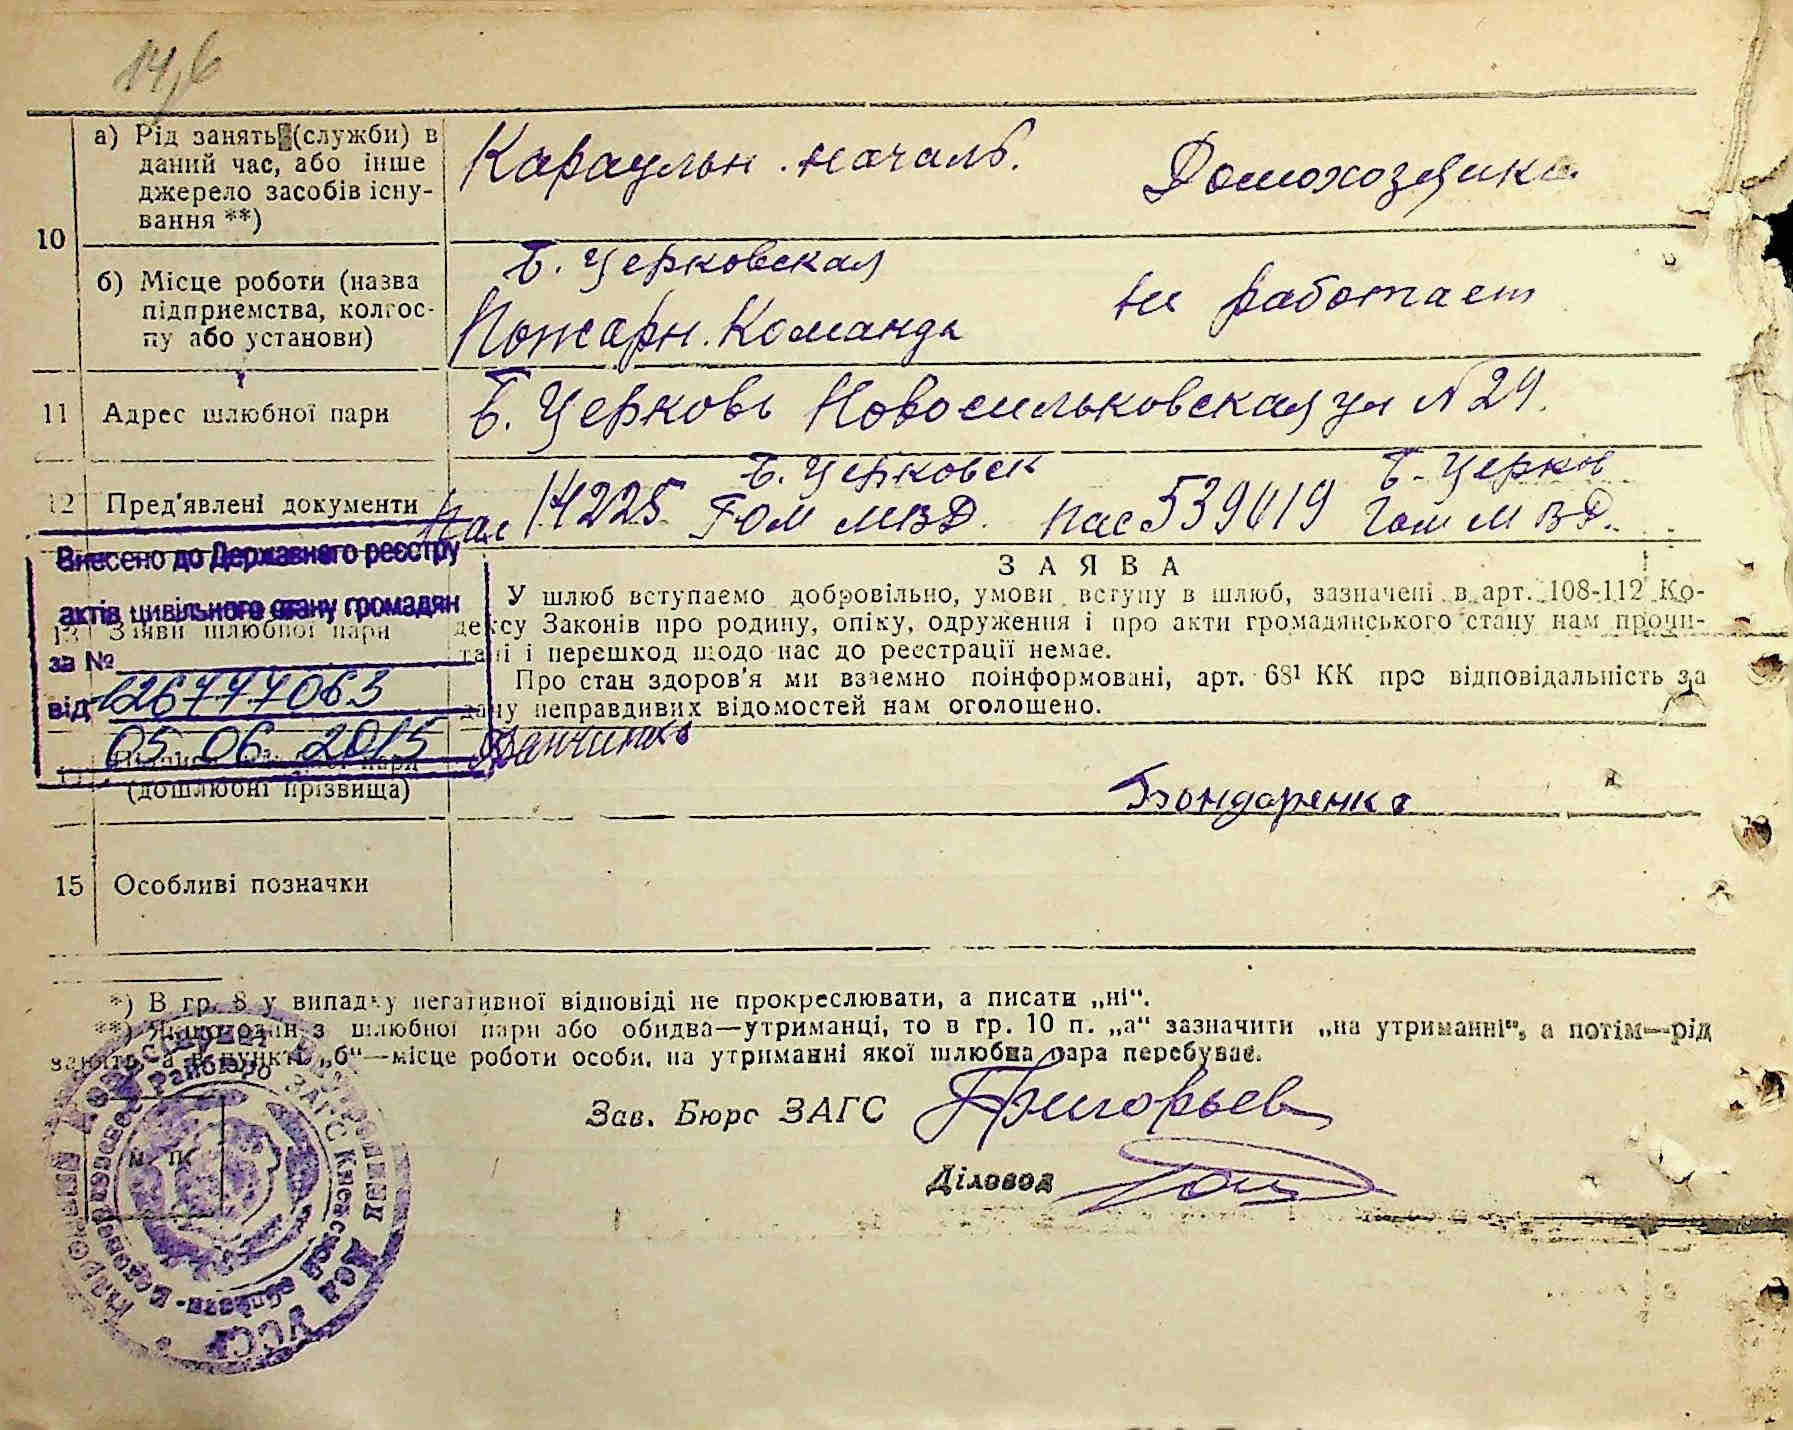 10
а) Рід занять (служби) в
даний час, або інше
джерело засобів існу-
вання **)
Караульн. началь.
Домохозяйка
б) Місце роботи (назва
підприємства, колгос-
пу або установи)
Б. Церковская
Пожарн. Команда
не работает
11 Адрес шлюбної пари
Б. Церковь Новосильковская ул № 24.
12 Пред'явлені документи
Пас 14225 Б. Церковск
ГОМ МВД.
пас 539019 Б. Церков
Гом МВД.
Внесено до Державного реєстру
актів цивільного стану громадян
за №
126777063
від
05 06 2015
13 Заяви шлюбної пари
ЗАЯВА
У шлюб вступаємо добровільно, умови вступу в шлюб, зазначені в арт. 108-112 Ко-
дексу Законів про родину, опіку, одруження і про акти громадянського стану нам прочи-
тані і перешкод щодо нас до реєстрації немає.
Про стан здоров'я ми взаємно поінформовані, арт. 68¹ КК про відповідальність за
дачу неправдивих відомостей нам оголошено.
пари
(дошлюбні прізвища)
Бондаренко
15 Особливі позначки
*) В гр. 8 у випадку негативної відповіді не прокреслювати, а писати „ні“.
**) Якщо один з шлюбної пари або обидва—утриманці, то в гр. 10 п. „а“ зазначити „на утриманні“, а потім—рід
занять, а в пункті „б“—місце роботи особи, на утриманні якої шлюбна пара перебуває.
Зав. Бюро ЗАГС Григорьев
Діловод
М. П.